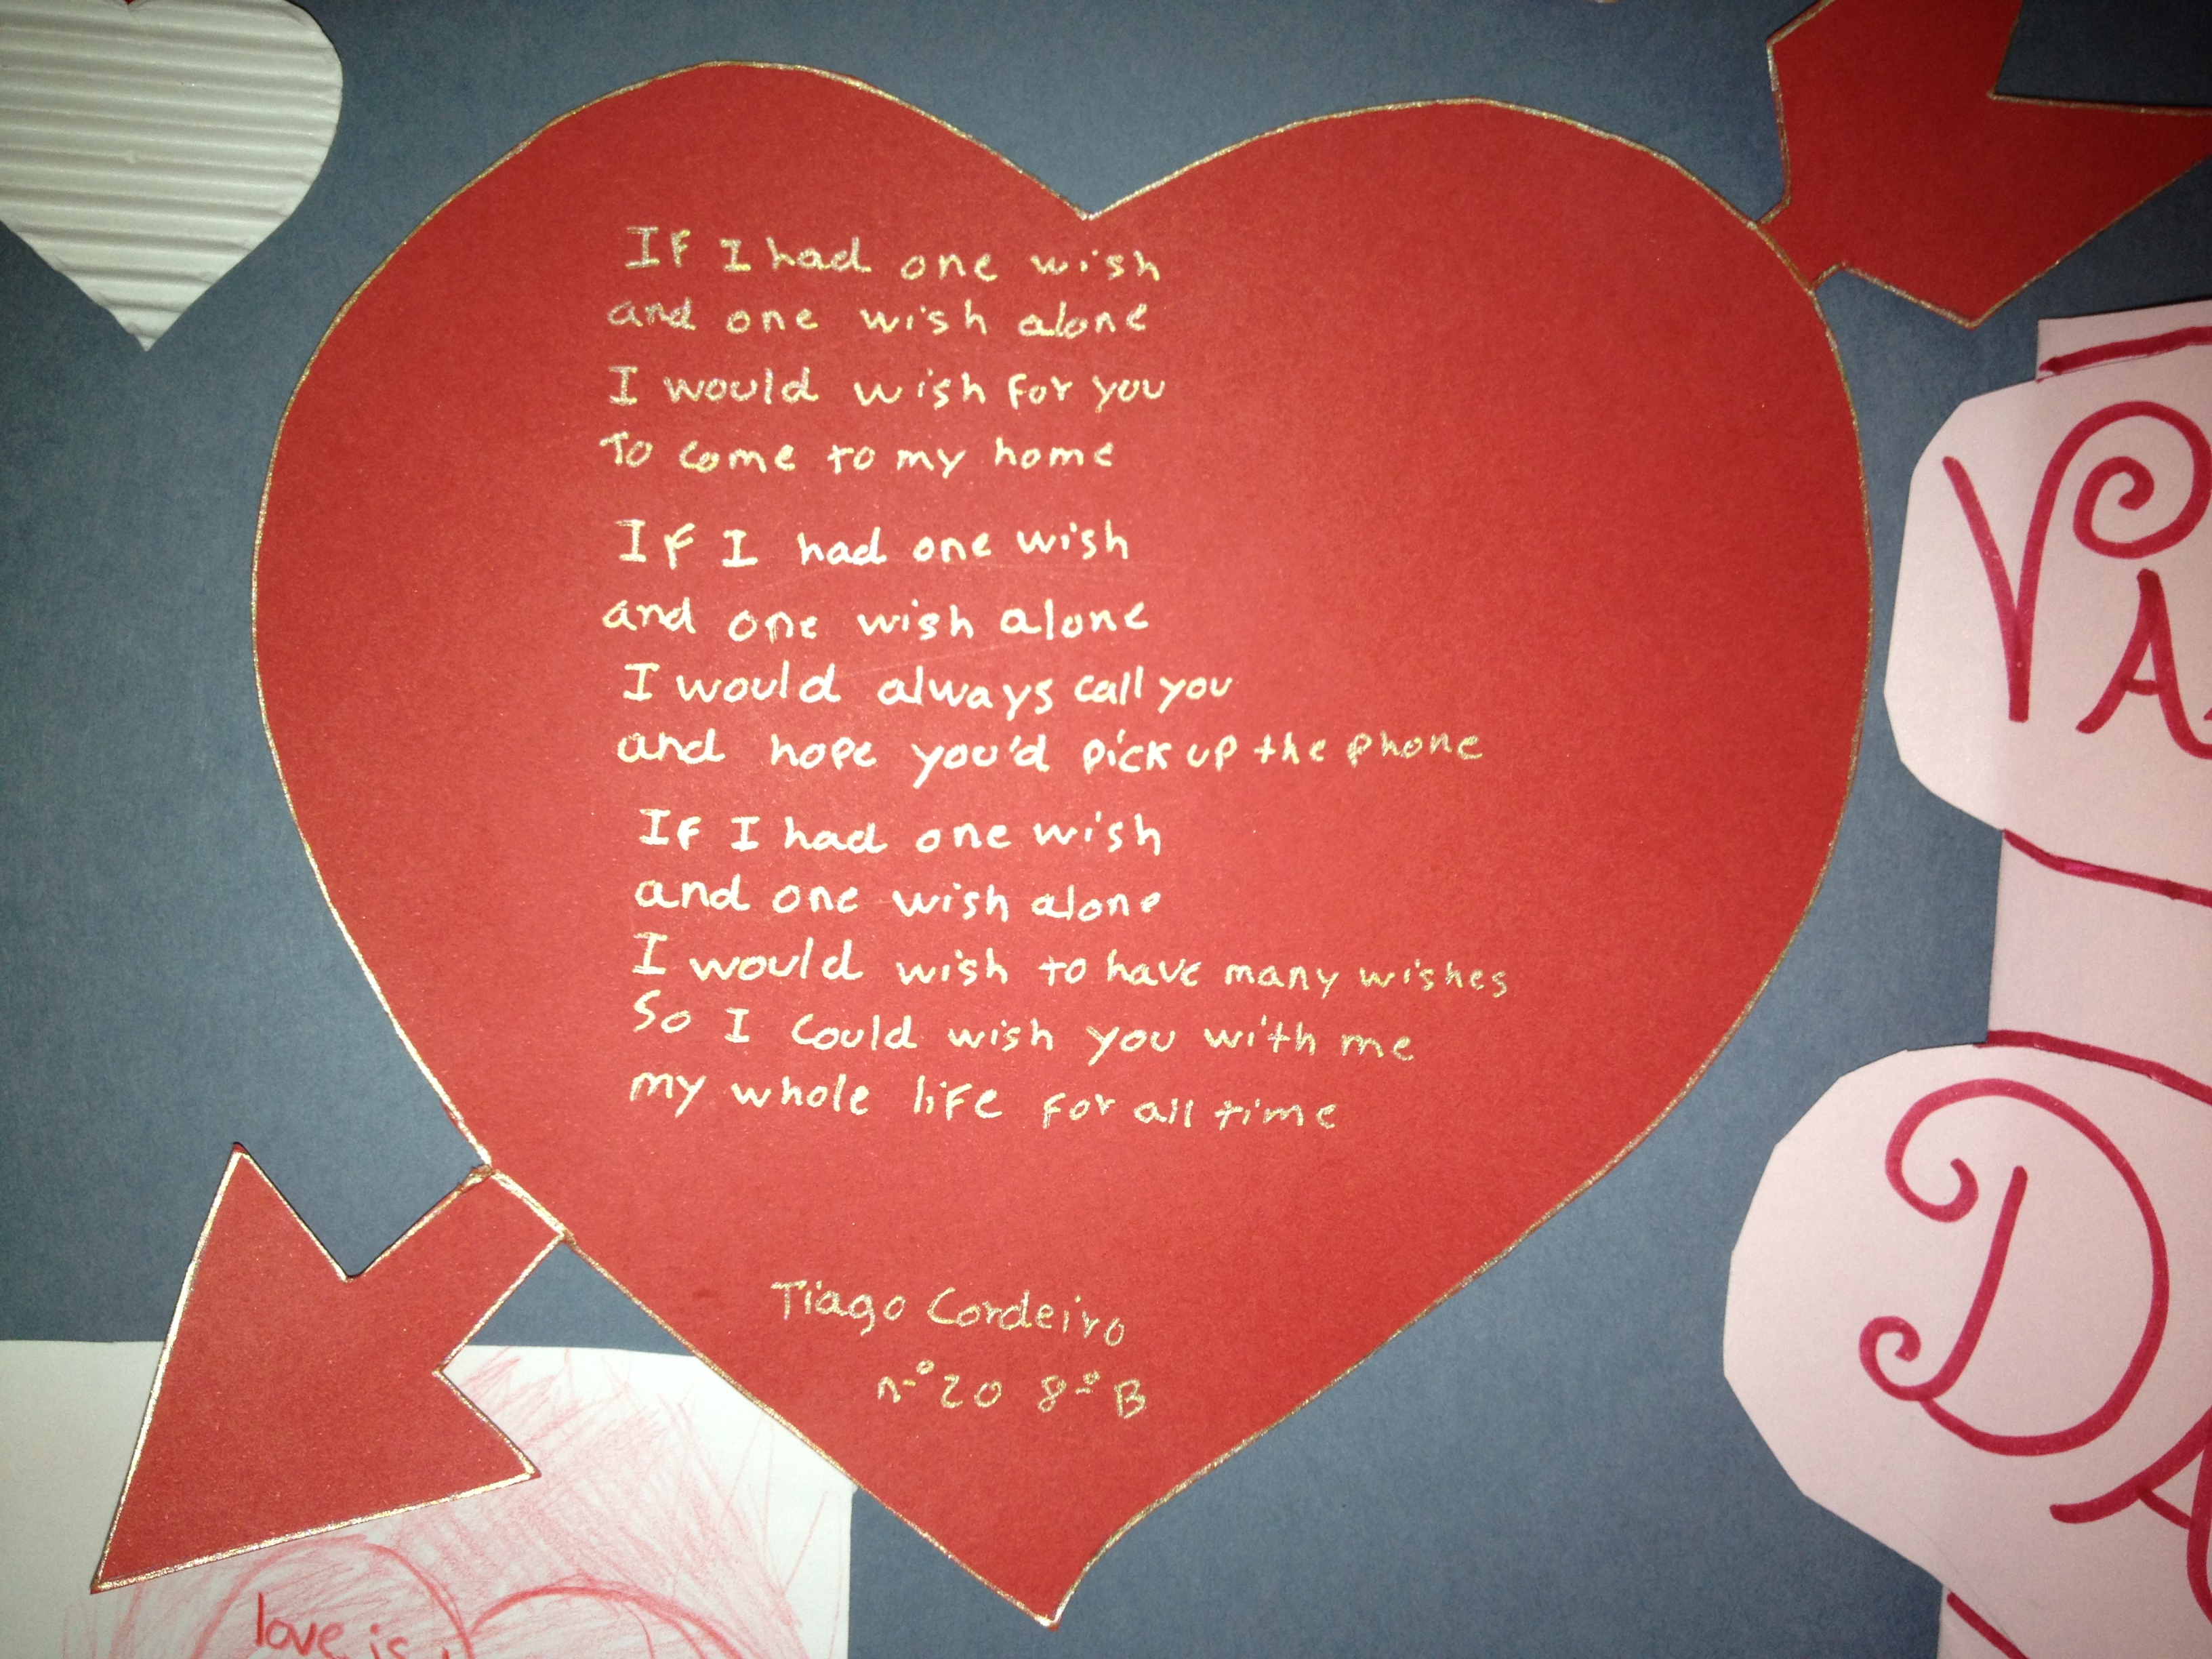 If I had one wish
and one wish alone
I would wish for you
To come to my home
If I had one wish
and one wish alone
I would always call you
and hope you'd pick up the phone
If I had one wish
and one wish alone
I would wish to have many wishes
So I could wish you with me
my whole life for all time
Tiago Cordeiro
nº 20 8º B
love is
VA
DA